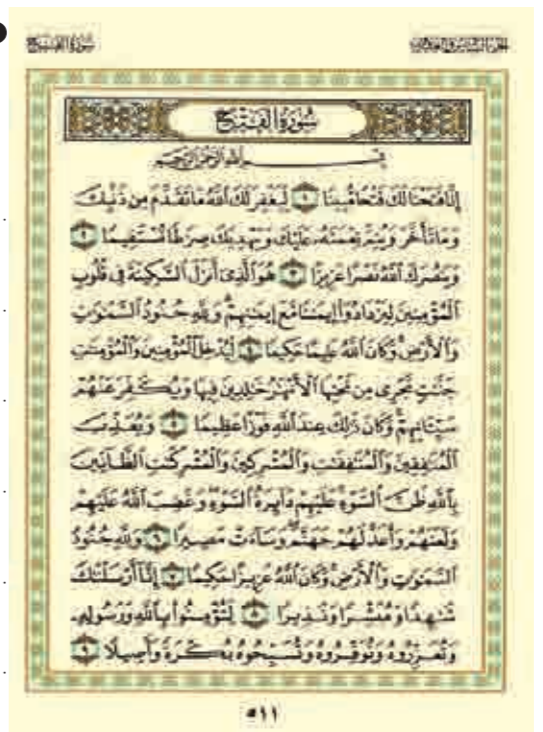 الجزء السادس والعشرون
سورة الفتح
سُورَةُ الفَتْحِ
بِسْمِ اللَّهِ الرَّحْمَٰنِ الرَّحِيمِ
إِنَّا فَتَحْنَا لَكَ فَتْحًا مُّبِينًا ١ لِّيَغْفِرَ لَكَ اللَّهُ مَا تَقَدَّمَ مِن ذَنۢبِكَ
وَمَا تَأَخَّرَ وَيُتِمَّ نِعْمَتَهُۥ عَلَيْكَ وَيَهْدِيَكَ صِرَٰطًا مُّسْتَقِيمًا ٢
وَيَنصُرَكَ اللَّهُ نَصْرًا عَزِيزًا ٣ هُوَ الَّذِىٓ أَنزَلَ السَّكِينَةَ فِى قُلُوبِ
الْمُؤْمِنِينَ لِيَزْدَادُوٓا۟ إِيمَٰنًا مَّعَ إِيمَٰنِهِمْ وَلِلَّهِ جُنُودُ السَّمَٰوَٰتِ
وَالْأَرْضِ وَكَانَ اللَّهُ عَلِيمًا حَكِيمًا ٤ لِّيُدْخِلَ الْمُؤْمِنِينَ وَالْمُؤْمِنَٰتِ
جَنَّٰتٍ تَجْرِى مِن تَحْتِهَا الْأَنْهَٰرُ خَٰلِدِينَ فِيهَا وَيُكَفِّرَ عَنْهُمْ
سَيِّـَٔاتِهِمْ وَكَانَ ذَٰلِكَ عِندَ اللَّهِ فَوْزًا عَظِيمًا ٥ وَيُعَذِّبَ
الْمُنَٰفِقِينَ وَالْمُنَٰفِقَٰتِ وَالْمُشْرِكِينَ وَالْمُشْرِكَٰتِ الظَّآنِّينَ
بِاللَّهِ ظَنَّ السَّوْءِ عَلَيْهِمْ دَآئِرَةُ السَّوْءِ وَغَضِبَ اللَّهُ عَلَيْهِمْ
وَلَعَنَهُمْ وَأَعَدَّ لَهُمْ جَهَنَّمَ وَسَآءَتْ مَصِيرًا ٦ وَلِلَّهِ جُنُودُ
السَّمَٰوَٰتِ وَالْأَرْضِ وَكَانَ اللَّهُ عَزِيزًا حَكِيمًا ٧ إِنَّآ أَرْسَلْنَٰكَ
شَٰهِدًا وَمُبَشِّرًا وَنَذِيرًا ٨ لِّتُؤْمِنُوا۟ بِاللَّهِ وَرَسُولِهِۦ
وَتُعَزِّرُوهُ وَتُوَقِّرُوهُ وَتُسَبِّحُوهُ بُكْرَةً وَأَصِيلًا ٩
٥١١